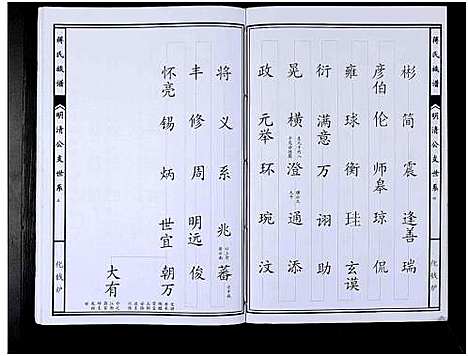 蒋氏族谱 明清公支世系 化钱炉
彬 简 震 逢善 瑞
彦伯 伦 师皋 琼 侃
雍 球 衡 珪 玄谟
衍 满意 万 诩 助
晃 横 澄 通 添
政 元举 环 琬 汶
将 义 系 兆 蕃
丰 修 周 明远 俊
怀亮 锡 炳 世宜 朝万
大有
蒋氏族谱 明清公支世系 化钱炉